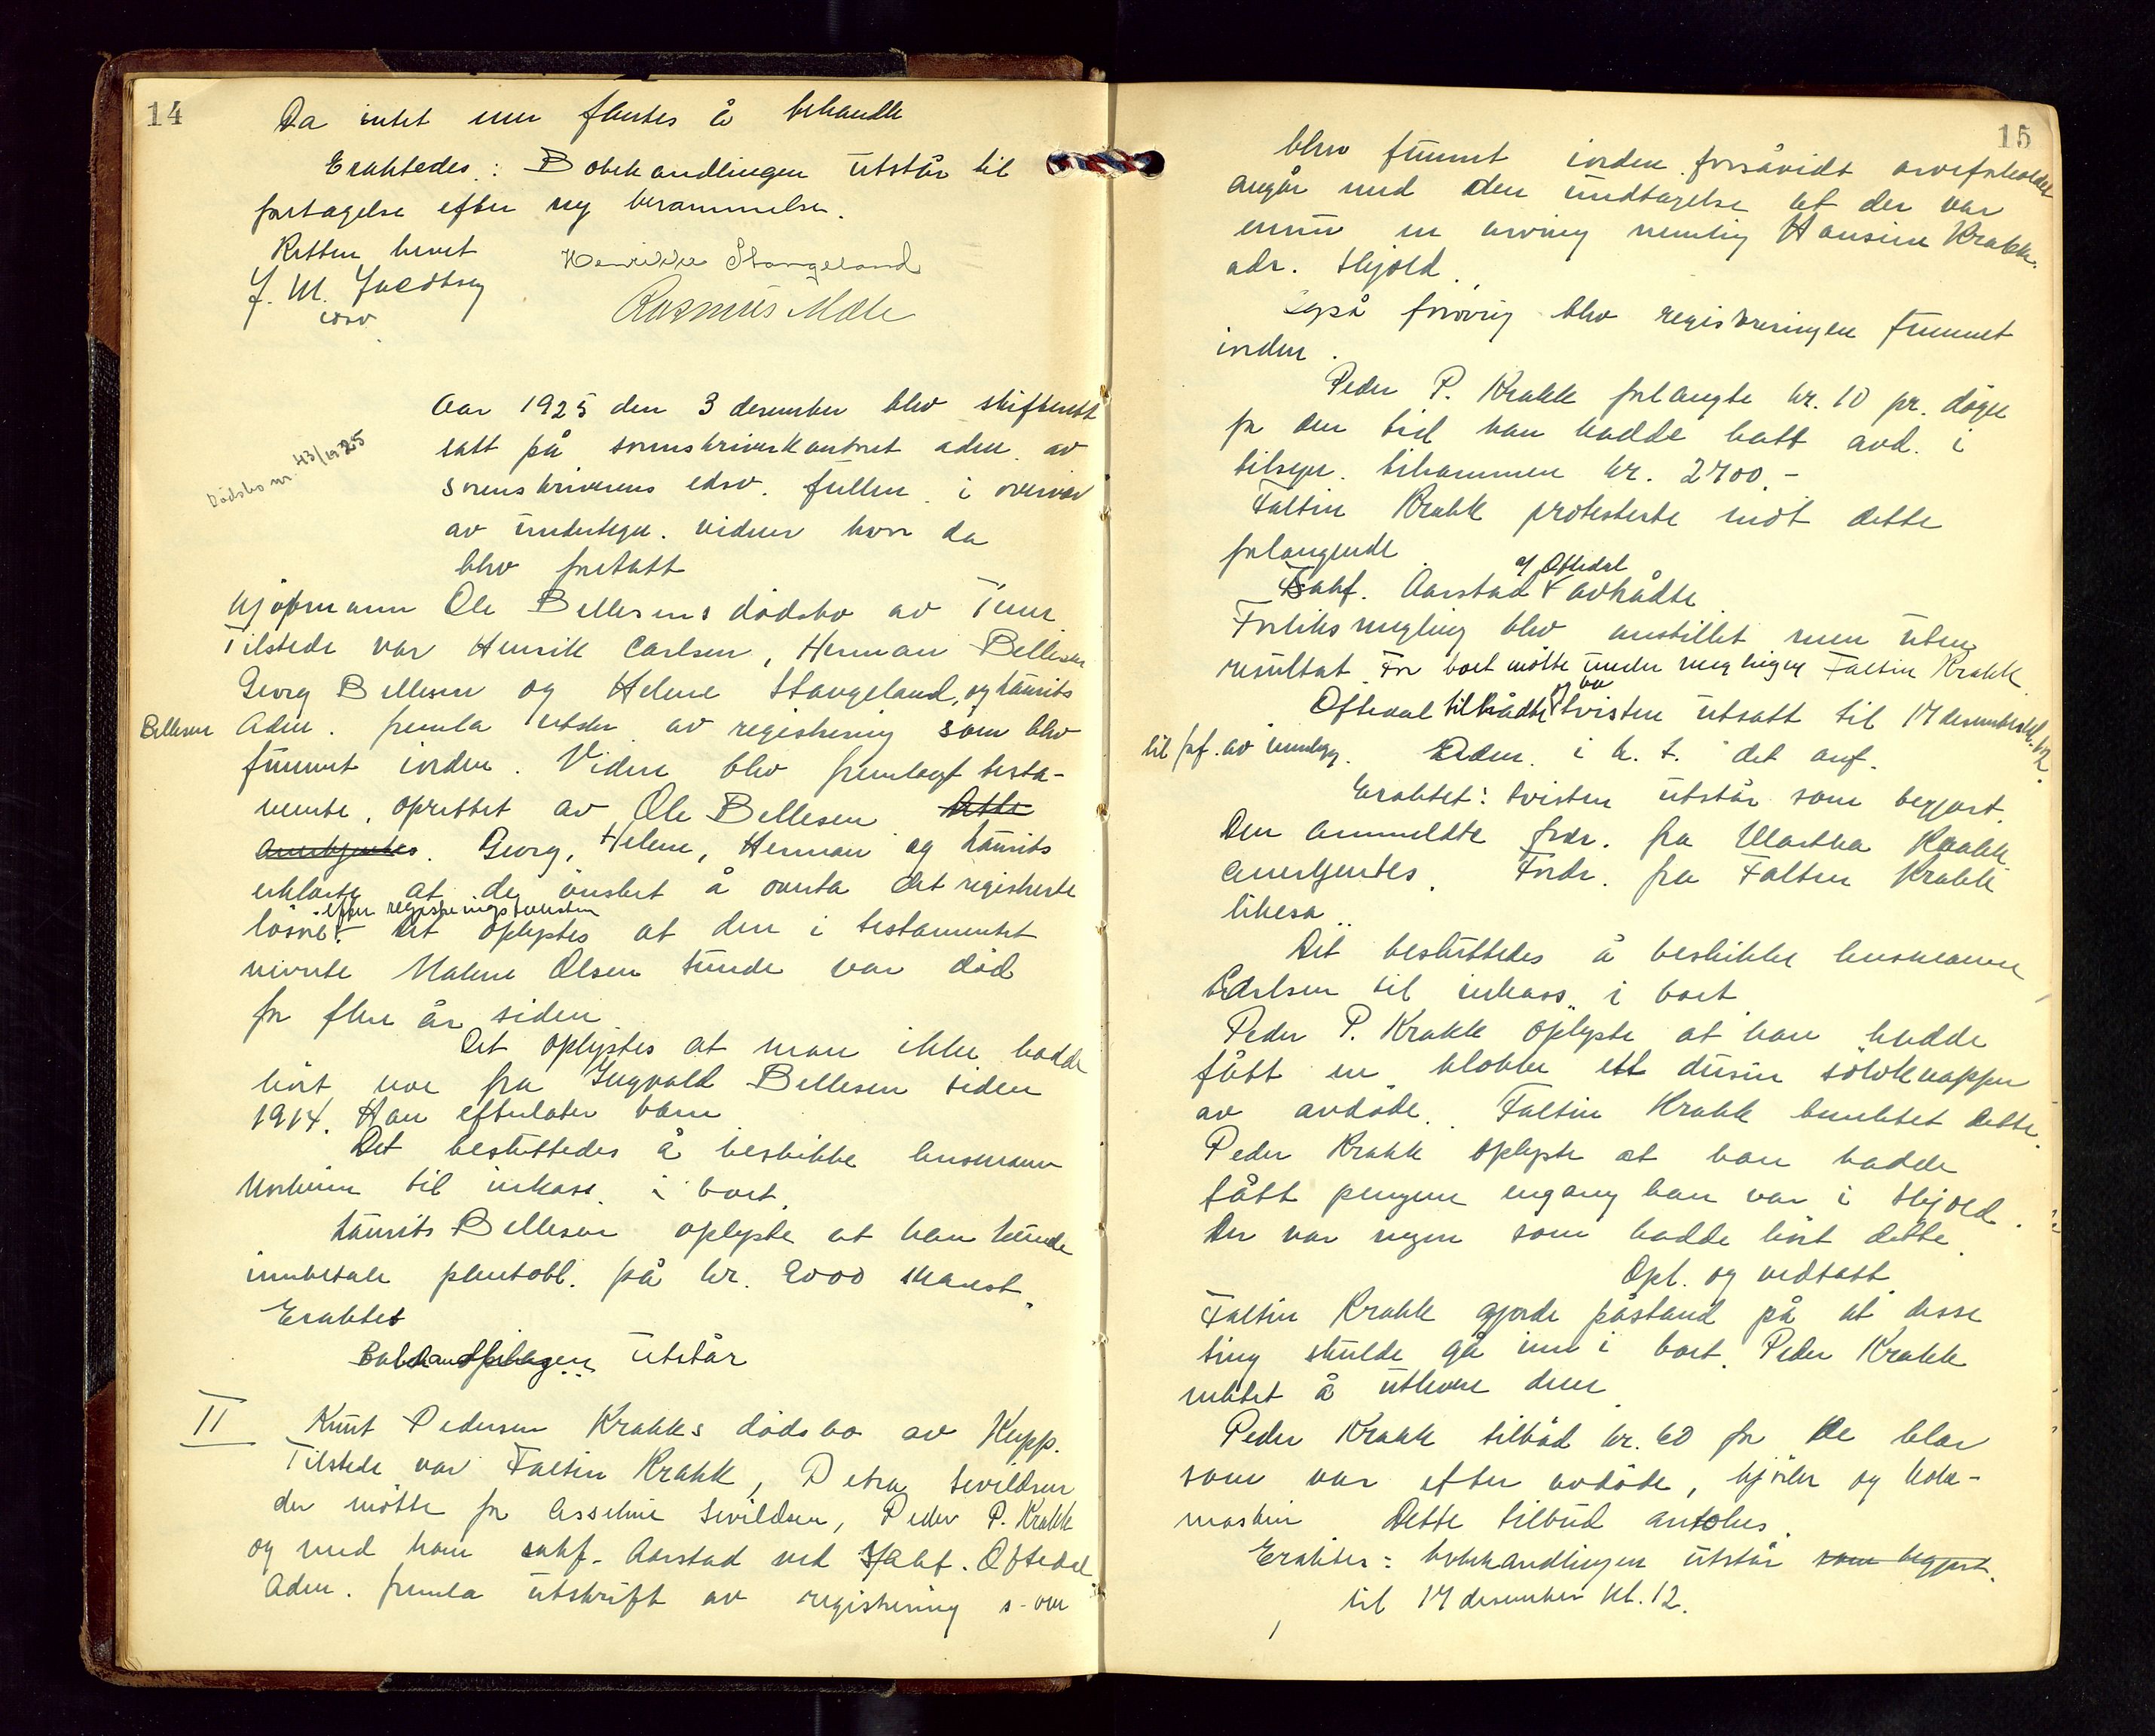 14
Da intet mer fantes å behandle
Eraktedes: Bobehandlingen utstår til
fortagelse efter ny berammelse.
Retten hevet
Henrikke Stangeland
J. M.
edsv
Rasmus Mæle
Aar 1925 den 3 desember blev skifterett
satt på sorenskriverkontoret adm. av
sorenskriverens edsv. fullm. i overvær
av undertegn. vidner hvor da
blev foretatt
Dødsbo nr. 43/1925
Kjøpmann Ole Bellesens dødsbo av
Tilstede var Henrik Carlsen, Herman Bellesen
Georg Bellesen og Helene Stangeland, og Laurits
Bellesen
Adm. fremla utskr. av registrering som blev
funnet i orden. Videre blev fremlagt testa-
mente, oprettet av Ole Bellesen Dette
anerkjentes. Georg, Helene, Herman og Laurits
erklærte at de ønsket å overta det registrerte
efter registreringstaksten
løsøre. Det oplystes at den i testamentet
nevnte Malene Olsen Lunde var død
for flere år siden
Det oplystes at man ikke hadde
hørt noe fra Ingvald Bellesen siden
1914. Han efterlater barn
Det besluttedes å beskikke lensmann
til inkass. i boet.
Laurits Bellesen oplyste at han kunde
innbetale panteobl. på kr. 2000 kontant.
Eraktet
Bobehandlingen utstår
II
Knut Pedersen Krakks dødsbo av Kopp.
Tilstede var Faltin Krakk, Petra Sevildsen
der møtte for Asseline Sevildsen, Peder P. Krakk
og med ham sakf. Aarstad ved sakf. Oftedal
Adm. fremla utskrift av registrering s. om
15
blev funnet i orden forsåvidt arveforholdet
angår med den undtagelse at der var
ennu en arving nemlig Hansine Krakk
adr. Skjold.
Også forøvrig blev registreringen funnet
i orden.
Peder P. Krakk forlangte kr. 10 pr. døgn
for den tid han hadde hatt avd. i
tilsyn. tilsammen kr. 2700.-
Faltin Krakk protesterte mot dette
forlangende
v/ Oftedal
Sakf. Aarstad
Forliksmegling blev anstillet men uten
resultat. For boet møtte under meglingen Faltin Krakk.
Oftedal tvisten utsatt til 17 desember kl. 12
til pf. av innlegg. Adm. i h. t. det anf.
Eraktet: tvisten utstår som begjært.
Den anmeldte fordr. fra Martha Krakk
anerkjentes. Fordr. fra Faltin Krakk
likeså.
Det besluttedes å beskikke lensmann
Carlsen til inkass. i boet
Peder P. Krakk oplyste at han hadde
fått en klokke ett dusin sølvknapper
av avdøde. Faltin Krakk benektet dette.
Peder Krakk oplyste at han hadde
fått pengene engang han var i Skjold.
Der var ingen som hadde hørt dette.
Opl. og vedtatt.
Faltin Krakk gjorde påstand på at disse
ting skulde gå inn i boet. Peder Krakk
nektet å utlevere dem
Peder Krakk tilbød kr. 60 for de klær
som var efter avdøde, kjører og
maskin Dette tilbud antokes.
Eraktes: bobehandlingen utstår som begjært.
til 17 desember kl. 12.